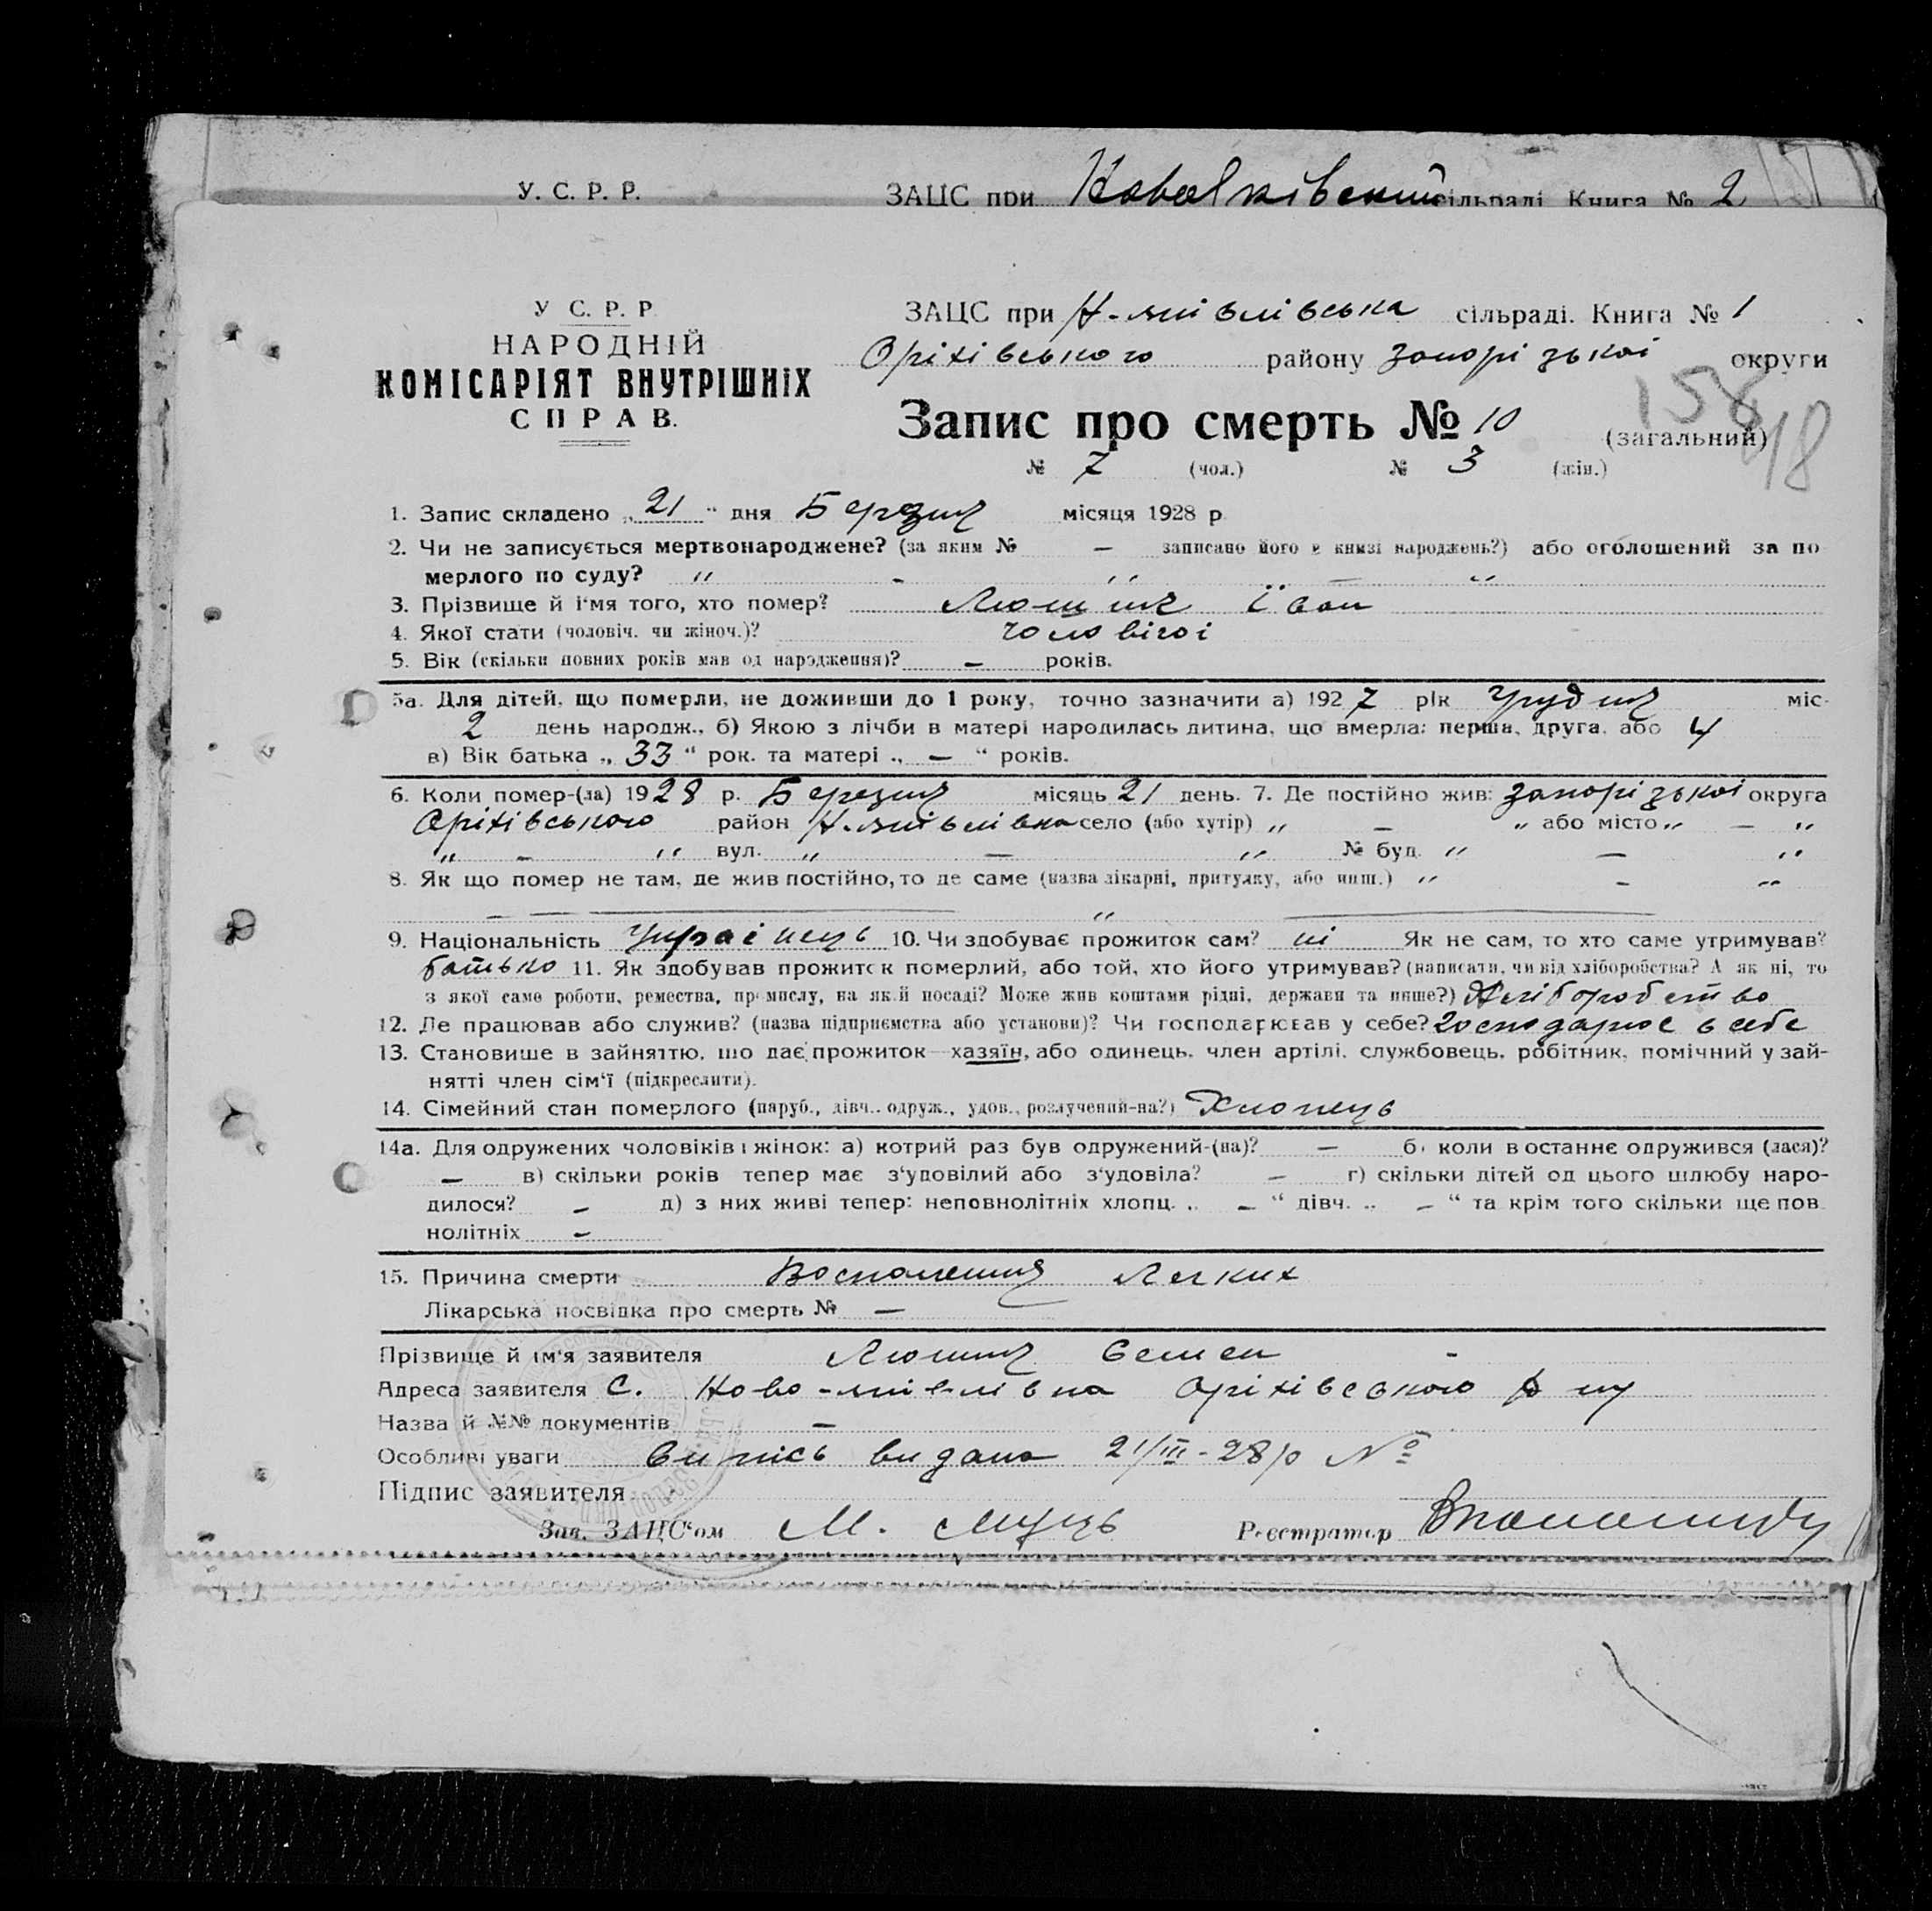 У. С. Р. Р. ЗАЦС при сільраді. Книга № 2
У С. Р. Р
НАРОДНІЙ
КОМІСАРІЯТ ВНУТРІШНІХ
СПРАВ.
ЗАЦС при сільраді. Книга № 1
Оріхівського району Запорізькоі округи
158
18
Запис про смерть № 10 (загальний)
№ 7 (чол.) № 3 (жін.)
1. Запис складено „ 21 “ дня Березня місяця 1928 р
2. Чи не записується мертвонароджене? (за яким № — записано його в книзі народжень?) або оголошений за по
мерлого по суду? „ - „ — „
3. Прізвище й і‘мя того, хто помер? Іван
4. Якої стати (чоловіч. чи жіноч.)? чоловічоі
5. Вік (скільки повних років мав од народження)? — років.
5а. Для дітей, що померли, не доживши до 1 року, точно зазначити а) 1927 рік Грудня міс.
2 день народж., б) Якою з лічби в матері народилась дитина, що вмерла: перша, друга, або 4
в) Вік батька „ 33 “ рок. та матері „ — “ років.
6. Коли помер-(ла) 1928 р. Березня місяць 21 день. 7. Де постійно жив: Запорізькоі округа
Оріхівського район село (або хутір) „ — „ або місто „ — „
„ — „ вул. „ — „ № буд. „ — „
8. Як що помер не там, де жив постійно, то де саме (назва лікарні, притулку, або инш.) „ — „
— — „ —
9. Національність Украінець 10. Чи здобуває прожиток сам? ні Як не сам, то хто саме утримував?
батько 11. Як здобував прожиток померлий, або той, хто його утримував? (написати, чи від хліборобства? А як ні, то
з якої саме роботи, ремества, промислу, на якій посаді? Може жив коштами рідні, держави та инше?) Хліборобство
12. Де працював або служив? (назва підприємства або установи)? Чи господарював у себе? господарює в себе
13. Становище в зайняттю, що дає прожиток—хазяїн, або одинець, член артілі, службовець, робітник, помічний у зай-
нятті член сім‘ї (підкреслити).
14. Сімейний стан померлого (паруб., дівч.. одруж., удов., розлучений-на?) Хлопець
14а. Для одружених чоловіків і жінок: а) котрий раз був одружений-(на)? — б) коли востаннє одружився (лася)?
— в) скільки років тепер має з‘удовілий або з‘удовіла? — г) скільки дітей од цього шлюбу наро-
дилося? — д) з них живі тепер: неповнолітніх хлопц. „ — “ дівч. „ — “ та крім того скільки ще пов
нолітніх —
15. Причина смерти Восполения Легких
Лікарська посвідка про смерть № —
Прізвище й ім‘я заявителя Семен -
Адреса заявителя с. Оріхівського р ну
Назва й №№ документів —
Особливі уваги випись видана 21/III-28 р №
Підпис заявителя
Зав. ЗАЦС‘ом М. Реєстратор